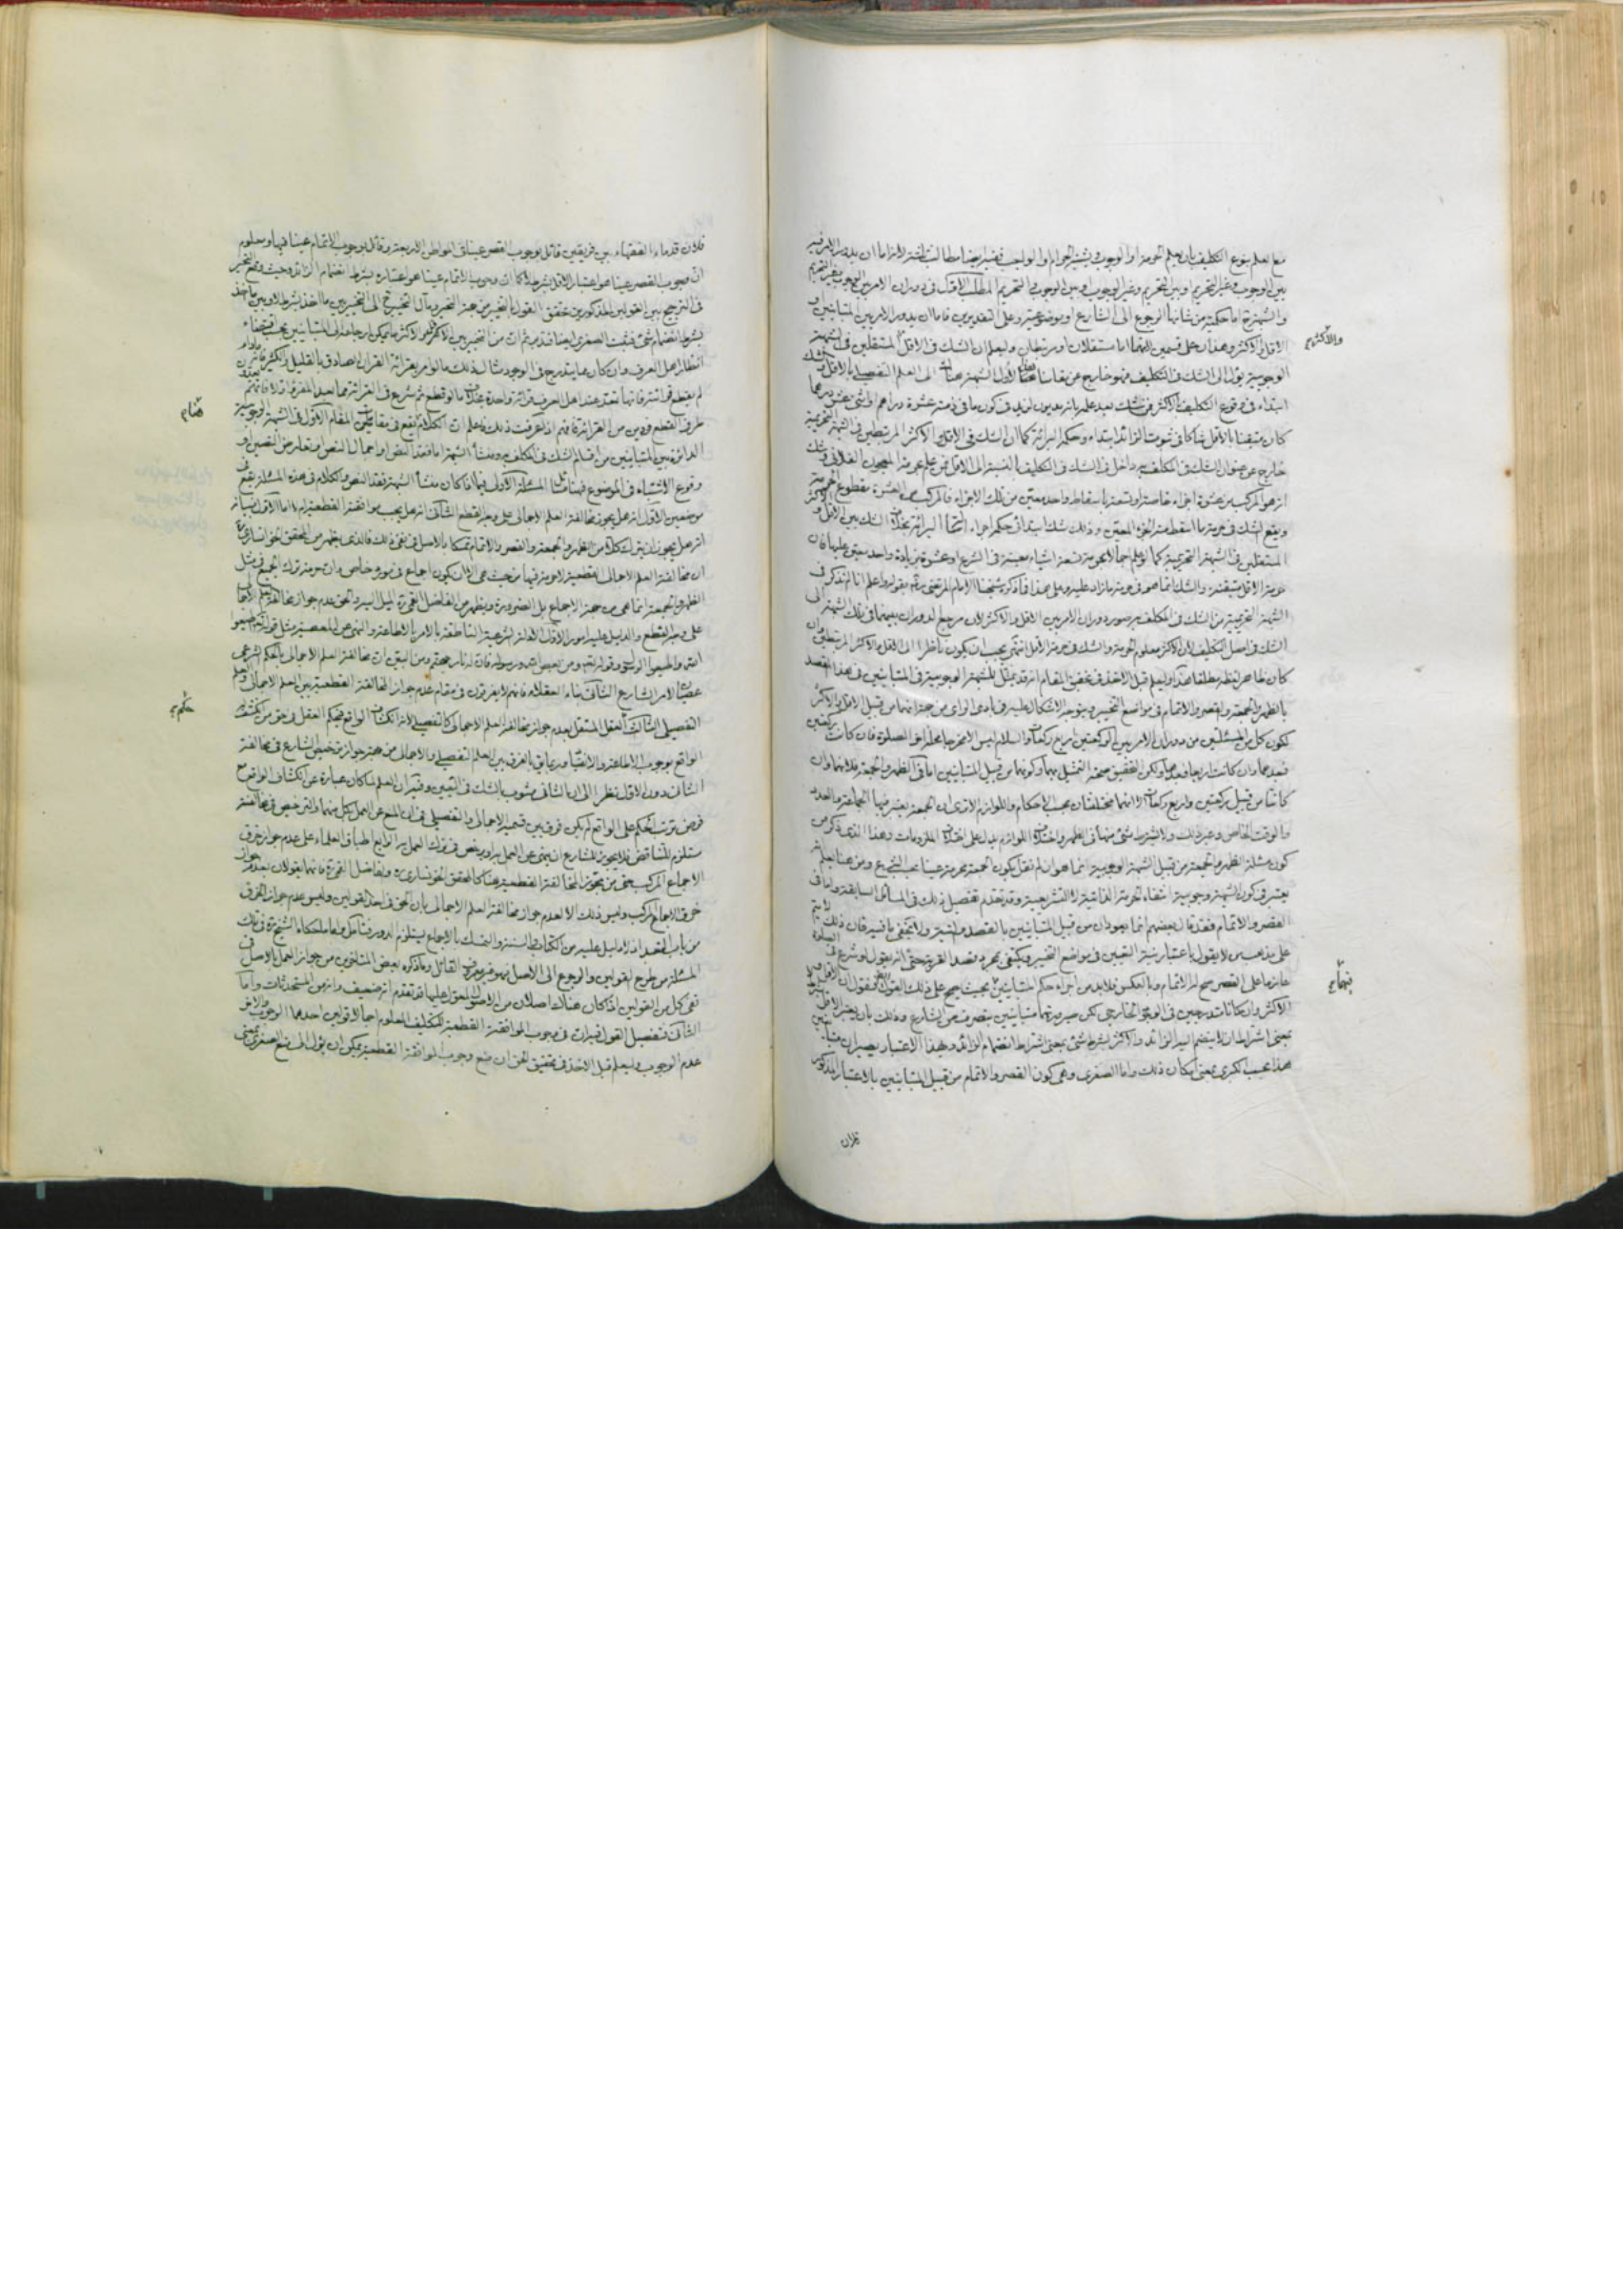 مع العلم بنوع التكليف بان يعلم الحرمة او الوجوب ويشتبه الحرام او الواجب
بين الوجوب وغير التحريم وبين التحريم وغير الوجوب وبين الوجوب والتحريم المطلب الاول في دوران الامر بين الوجوب وغير التحريم
والشبهة اما حكمية من شانها الرجوع الى الشارع او موضوعية وعلى التقديرين فاما ان يدور الامر بين المتباينين او
الاقل والاكثر وهذان على قسمين لانهما اما مستقلان او مرتبطان وليعلم ان الشك في الاقل المستقلين في الشبهة
الوجوبية يؤل الى الشك في التكليف فهو خارج عن مقامنا هذا
ابتداء في وقوع التكليف بالاكثر فمن شك بعد علمه بانه مديون لزيد في كون ما في ذمته عشرة دراهم
كان متيقنا بالاقل شاكا في ثبوت الزائد ابتداء وحكمه البرائة كما ان الشك في الاقل والاكثر المرتبطين في الشبهة التحريمية
خارج عن عنوان الشك في المكلف به داخل في الشك في التكليف بالنسبة الى الاقل فمن علم حرمة المعجون الفلاني وشك
انه هو المركب من عشرة اجزاء خاصة او تسعة باسقاط واحد معين من تلك الاجزاء فالمركب من العشرة مقطوع الحرمة
ويقع الشك في حرمة ما اسقط منه الجزء المعين وذلك شك ابتدائي حكمه اجراء البرائة بخلاف الشك بين الاقل والاكثر
المستقلين في الشبهة التحريمية كما لو علم اجمالا بحرمة تسعة اشياء معينة في الشرع او عشرة بزيادة واحد معين عليها فان
حرمة الاقل متيقنة والشك انما هو في حرمة ما زاد عليه وعلى هذا
الشبهة التحريمية من الشك في المكلف به صورة دوران الامر بين الاقل والاكثر لان مرجع الدوران بينهما في تلك الشبهة الى
الشك في اصل التكليف لان الاكثر معلوم الحرمة والشك في حرمة الاقل انتهى يجب ان يكون ناظرا الى الاقل والاكثر المرتبطين وان
كان ظاهر لفظه مطلقا هذا وليعلم قبل الاخذ في تحقيق المقام انه قد يمثل للشبهة الوجوبية في المتباينين في هذا المقصد
بالظهر والجمعة والقصر والاتمام في مواضع التخيير ويتوجه الاشكال عليه في بادي الراي من جهة انهما من قبيل الاقل والاكثر
لكون كل من المسئلتين من دوران الامر بين الركعتين واربع ركعات والسلام ليس الا مخرجا محله اخر الصلوة فان كانت ركعتين
فبعدهما وان كانت اربعا فبعدها ولكن التحقيق صحة التمثيل بهما وكونهما من قبيل المتباينين اما في الظهر والجمعة فلانهما وان
كانتا من قبيل ركعتين واربع ركعات الا انهما مختلفتان بحسب الاحكام واللوازم الا ترى ان الجمعة يعتبر فيها الجماعة والعدد
والوقت الخاص وغير ذلك ولا يشترط شئ منها في الظهر واختلاف اللوازم يدل على اختلاف الملزومات وهذا الذي ذكر من
كون مسئلة الظهر والجمعة من قبيل الشبهة الوجوبية انما هو ان لم نقل بكون الجمعة محرمة عينا بحسب الشرع ومن هنا يعلم انه
يعتبر في كون الشبهة وجوبية انتفاء الحرمة الذاتية لا التشريعية وقد تقدم تفصيل ذلك في المسائل السابقة واما في
القصر والاتمام فقد قال بعضهم انما يعودان من قبيل المتباينين بالقصد والنية ولا يخفى ما فيه فان ذلك لا يتم
على مذهب من لا يقول باعتبار نية التعيين في مواضع التخيير ويكتفي بمجرد قصد القربة حتى انه يقول لو شرع في الصلوة
عازما على القصر صح له الاتمام وبالعكس فلا بد من اجراء حكم المتباينين بحيث يصح على ذلك القول ايضا فنقول ان الاقل و
الاكثر وان كانا متدرجين في الوجود الخارجي لكن صيرورتهما متباينين بتصرف من الشارع وذلك بان يعتبر الاقل بشرط لا
بمعنى اشتراط ان لا ينضم اليه الزائد والاكثر بشرط شئ بمعنى اشتراط انضمام الزائد وبهذا الاعتبار يصيران متباينين
هذا بحسب الكبرى بمعنى امكان ذلك واما الصغرى وهي كون القصر والاتمام من قبيل المتباينين بالاعتبار المذكور
والاكثر
فيهما
فلان
فلان قدماء الفقهاء بين فريقين قائل بوجوب القصر عينا في المواطن الاربعة وقائل بوجوب الاتمام عينا فيها ومعلوم
ان وجوب القصر عينا هو اعتبار الاقل بشرط لا كما ان وجوب الاتمام عينا هو اعتباره بشرط انضمام الزائد وحيث وقع التخيير
في الترجيح بين القولين المذكورين تحقق القول بالتخيير من جهة التخيير ومآل التخيير الى التخيير بين ما اخذ بشرط لا وبين ما اخذ
بشرط انضمام شئ فثبت الصغرى ايضا فتدبر ثم ان من التخيير بين الاقل والاكثر ما يمكن ارجاعه الى المتباينين بحسب اقتضاء
انظار اهل العرف وان كان مما يتدرج في الوجود مثال ذلك ما لو امر بقرائة القران الصادق بالقليل والكثير فانه ما دام
لم يقطع قرائته فانها تعد عند اهل العرف قرائة واحدة بخلاف ما لو قطع ثم شرع في القرائة
طرفي القطع فردين من القرائة فافهم اذا عرفت ذلك فاعلم ان الكلام يقع في مقامات المقام الاول في الشبهة الوجوبية
الدائرة بين المتباينين من اقسام الشك في المكلف به ومنشأ الشبهة اما فقد النص او اجمال النص او تعارض النصين او
وقوع الاشتباه في الموضوع فهنا مسائل المسئلة الاولى فيما اذا كان منشأ الشبهة فقد النص والكلام في هذه المسئلة يقع في
موضعين الاول انه هل يجوز مخالفة العلم الاجمالي على وجه القطع الثاني انه هل يجب موافقته القطعية ام لا اما الاول
انه هل يجوز ان يترك كلا من الظهر والجمعة والقصر والاتمام تمسكا بالاصل في نفي ذلك فالذي يظهر من المحقق الخوانساري
ان مخالفة العلم الاجمالي القطعية لا حرمة فيها من حيث هي الا ان يكون اجماع في مورد خاص وان حرمة ترك الجميع في مثل
الظهر والجمعة انما هي من جهة الاجماع بل الضرورة ويظهر من الفاضل القمي ره الميل اليه والحق عدم جواز مخالفة العلم الاجمالي
على وجه القطع والدليل عليه امور الاول الادلة الشرعية الناطقة بالامر بالاطاعة والنهي عن المعصية مثل قوله تعالى اطيعوا
الله واطيعوا الرسول وقوله تعالى ومن يعص الله ورسوله فان له نار جهنم ومن البين ان مخالفة العلم الاجمالي بالحكم الشرعي
عصيان لامر الشارع الثاني بناء العقلاء فانهم لا يفرقون في مقام عدم جواز المخالفة القطعية بين العلم الاجمالي والعلم
التفصيلي الثالث العقل المستقل بعدم جواز مخالفة العلم الاجمالي كالتفصيلي لانه انكشاف الواقع فيحكم العقل في حق من انكشف
الواقع بوجوب الاطاعة والانقياد وربما يق بالفرق بين العلم التفصيلي والاجمالي من جهة جواز ترخيص الشارع في مخالفة
الثاني دون الاول نظرا الى ان الثاني مشوب بالشك في التعيين وفيه ان العلم لما كان عبارة عن انكشاف الواقع مع
فرض ترتب الحكم على الواقع لم يكن فرق بين قسميه الاجمالي والتفصيلي في ان المنع عن العمل بكل منهما والترخيص في مخالفته
مستلزم للتناقض فلا يجوز للشارع ان ينهى عن العمل به او يرخص في ترك العمل به الرابع اطباق العلماء على عدم جواز خرق
الاجماع المركب حتى من يجوز المخالفة القطعية هنا كالمحقق الخوانساري ره والفاضل القمي ره فانهما يقولان بعدم جواز
خرق الاجماع المركب وليس ذلك الا لعدم جواز مخالفة العلم الاجمالي بان الحق في احد القولين وليس عدم جواز الخرق
من باب التعبد اذ لا دليل عليه من الكتاب والسنة والتمسك بالاجماع يستلزم الدور فتأمل واما ما حكاه الشيخ ره في تلك
المسئلة من طرح القولين والرجوع الى الاصل فهو غير معروف القائل وما ذكره بعض المتاخرين من جواز العمل بالاصل في
نفي كل من القولين اذا كان هناك اصلان فقد تقدم انه ضعيف وانه من المستحدثات واما
الثاني فتفصيل القول فيه ان في وجوب الموافقة القطعية للتكليف المعلوم اجمالا قولين احدهما الوجوب والاخر
عدم الوجوب وليعلم قبل الاخذ في تحقيق الحق ان منع وجوب الموافقة القطعية يمكن ان يؤل الى منع الصغرى بمعنى
حكم